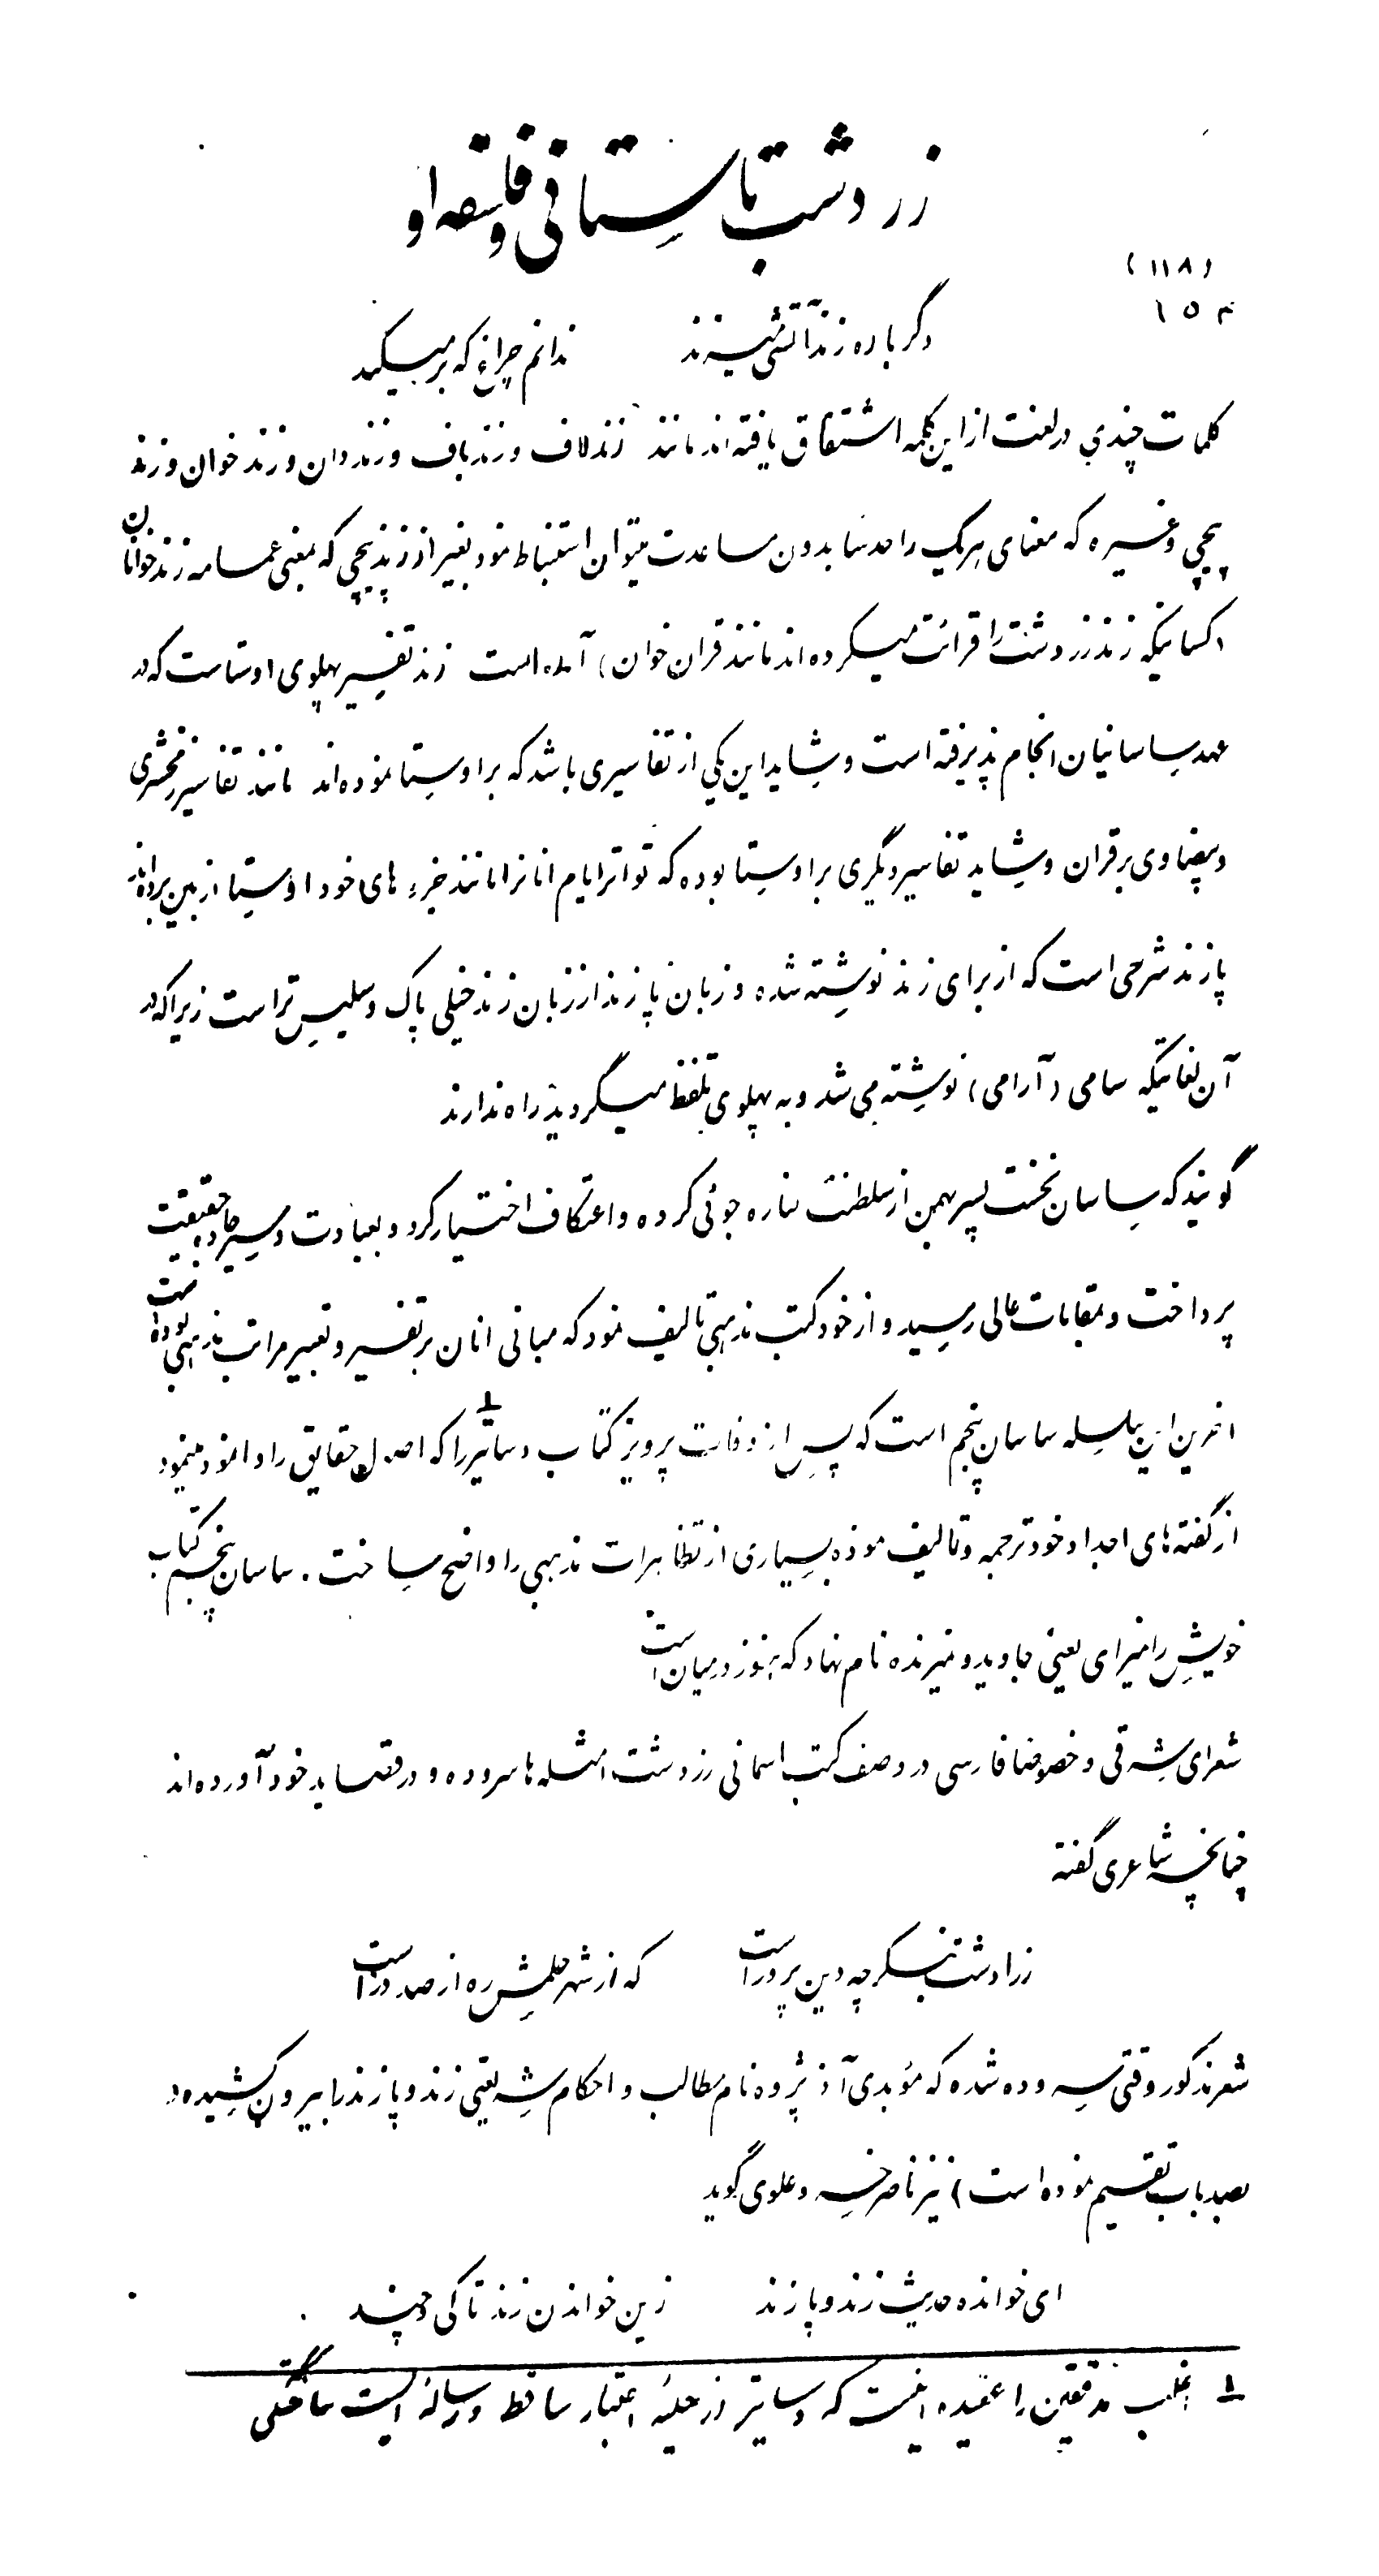 زردشت باستانی و فلسفه او
(۱۱۸)
۱۵۳
دگر باره زند آتشی میزند ندانم چراغ که بر میکند
کلمات چندی در لغت از این کلمه اشتقاق یافته اند مانند زندلاف و زندباف و زنددان و زندخوان و زند
پیچی و غیره که معنای هر یک را حدسا بدون مساعدت میتوان استنباط نمود بغیر از زندپیچی که بمعنی عمامه زندخوانان
(کسانیکه زند زردشت را قرائت میکرده اند مانند قران خوان) آمده است زند تفسیر پهلوی اوستاست که در
عهد ساسانیان انجام پذیرفته است و شاید این یکی از تفاسیری باشد که بر اوستا نموده اند مانند تفاسیر زمخشری
و بیضاوی بر قران و شاید تفاسیر دیگری بر اوستا بوده که تواتر ایام انانرا مانند جزء های خود اوستا از بین برده اند
پازند شرحی است که از برای زند نوشته شده و زبان پازند از زبان زند خیلی پاک و سلیس تر است زیرا که در
آن لغاتیکه سامی (آرامی) نوشته می شد و به پهلوی تلفظ میگردید راه ندارند
گویند که ساسان نخست پسر بهمن از سلطنت کناره جوئی کرده و اعتکاف اختیار کرد و بعبادت و سیر جاده حقیقت
پرداخت و بمقامات عالی رسید و از خود کتب مذهبی تالیف نمود که مبانی انان بر تفسیر و تعبیر مراتب مذهبی بوده است
اخرین این سلسله ساسان پنجم است که پس از وفات پرویز کتاب دساتیر ۱ را که اصول حقایق را وانمود مینمود
از گفته های اجداد خود ترجمه و تالیف نموده بسیاری از تظاهرات مذهبی را واضح ساخت. ساسان پنجم کتاب
خویش را نمیرای یعنی جاوید و نمیرنده نام نهاد که هنوز در میان است
شعرای شرقی و خصوصا فارسی در وصف کتب اسمانی زردشت امثله ها سروده و در قصاید خود آورده اند
چنانچه شاعری گفته
زرادشت بنگر چه دین پرور است که از شهر علمش ره از صد در است
شعر مذکور وقتی سروده شده که مؤبدی آذر پژوه نام مطالب و احکام شریعتی زند و پازند را بیرون کشیده و
بصد باب تقسیم نموده است) نیز ناصر خسرو علوی گوید
ای خوانده حدیث زند و پازند زین خواندن زند تا کی و چند
۱ اغلب مدققین را عقیده اینست که دساتیر از حلیه اعتبار ساقط و رساله ایست ساختگی